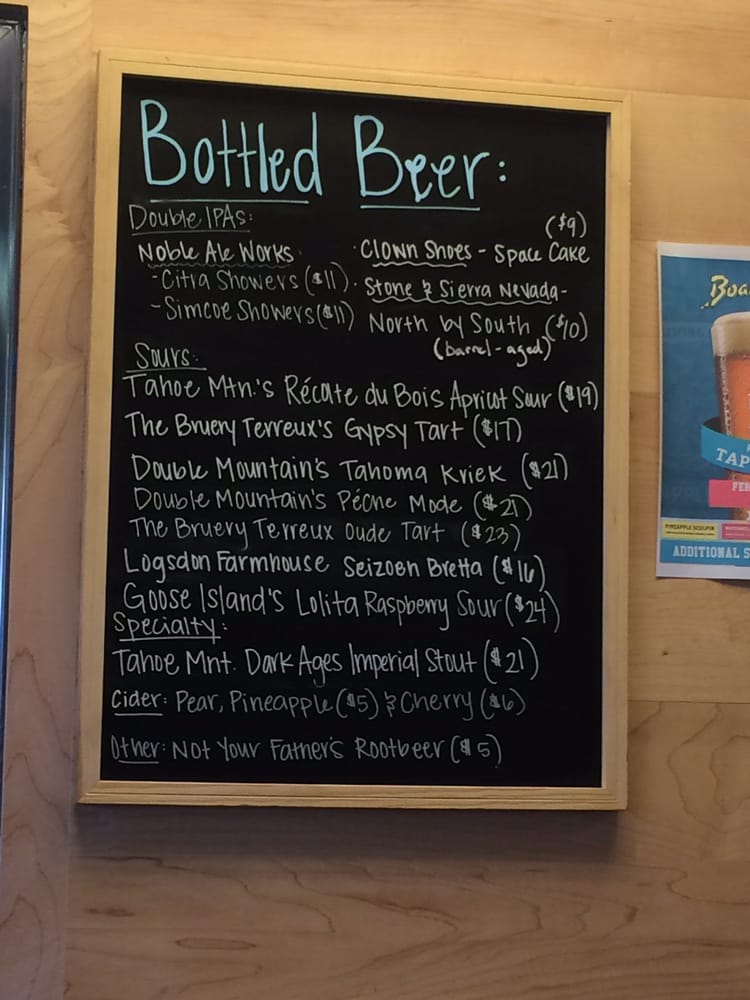 Bottled Beer:
Double IPAs:
Noble Ale Works
- Citra Showers ($11)
- Simcoe Showers ($11)
($9)
· Clown Shoes - Space Cake
· Stone & Sierra Nevada -
North by South ($10)
(barrel-aged)
Sours:
Tahoe Mtn.'s Récolte du Bois Apricot Sour ($19)
The Bruery Terreux's Gypsy Tart ($17)
Double Mountain's Tahoma Kriek ($21)
Double Mountain's Pêche Mode ($21)
The Bruery Terreux Oude Tart ($23)
Logsdon Farmhouse Seizoen Bretta ($16)
Goose Island's Lolita Raspberry Sour ($24)
Specialty:
Tahoe Mnt. Dark Ages Imperial Stout ($21)
Cider: Pear, Pineapple ($5) & Cherry ($6)
Other: Not Your Father's Rootbeer ($5)
Boa
TAP
FEB
PINEAPPLE SCULPIN
ADDITIONAL S